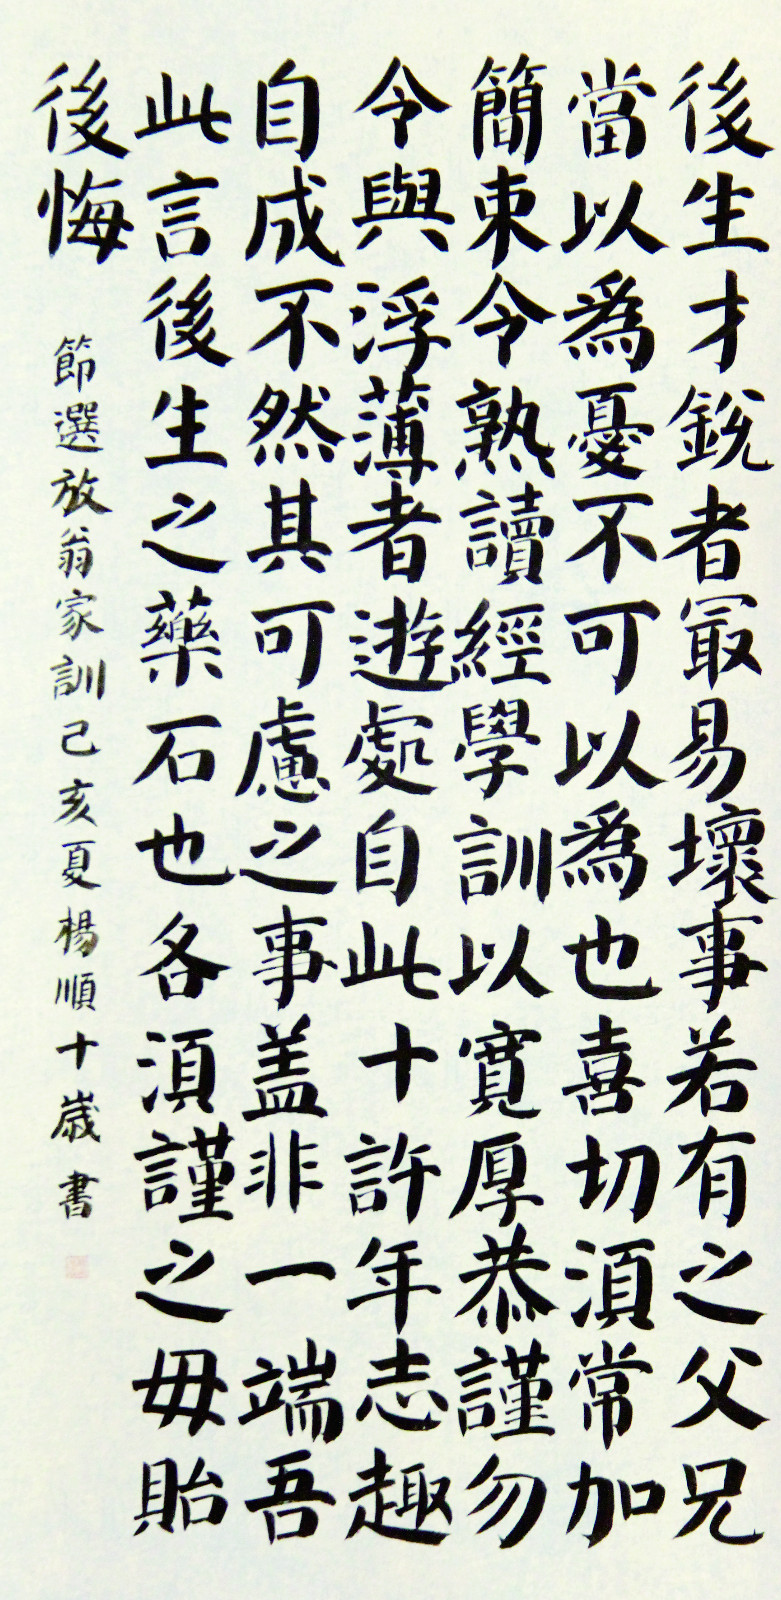 後生才銳者冣易壞事若有之父兄
當以為憂不可以為也喜切湏常加
簡束令熟讀經學訓以寬厚恭謹勿
令與浮薄者遊處自此十許年志趣
自成不然其可慮之事盖非一端吾
此言後生之藥石也各湏謹之毋貽
後悔
節選放翁家訓己亥夏楊順十歲書